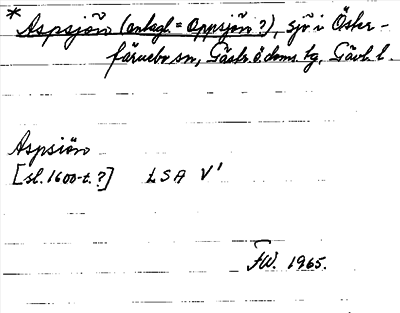 * Aspsjön (antagl. = Oppsjön ?), sjö i Öster-
färnebo sn, Gästr. ö. doms. tg, Gävl. l.
Aspsiön
[sl. 1600-t. ?] LSA V¹
FW. 1965.